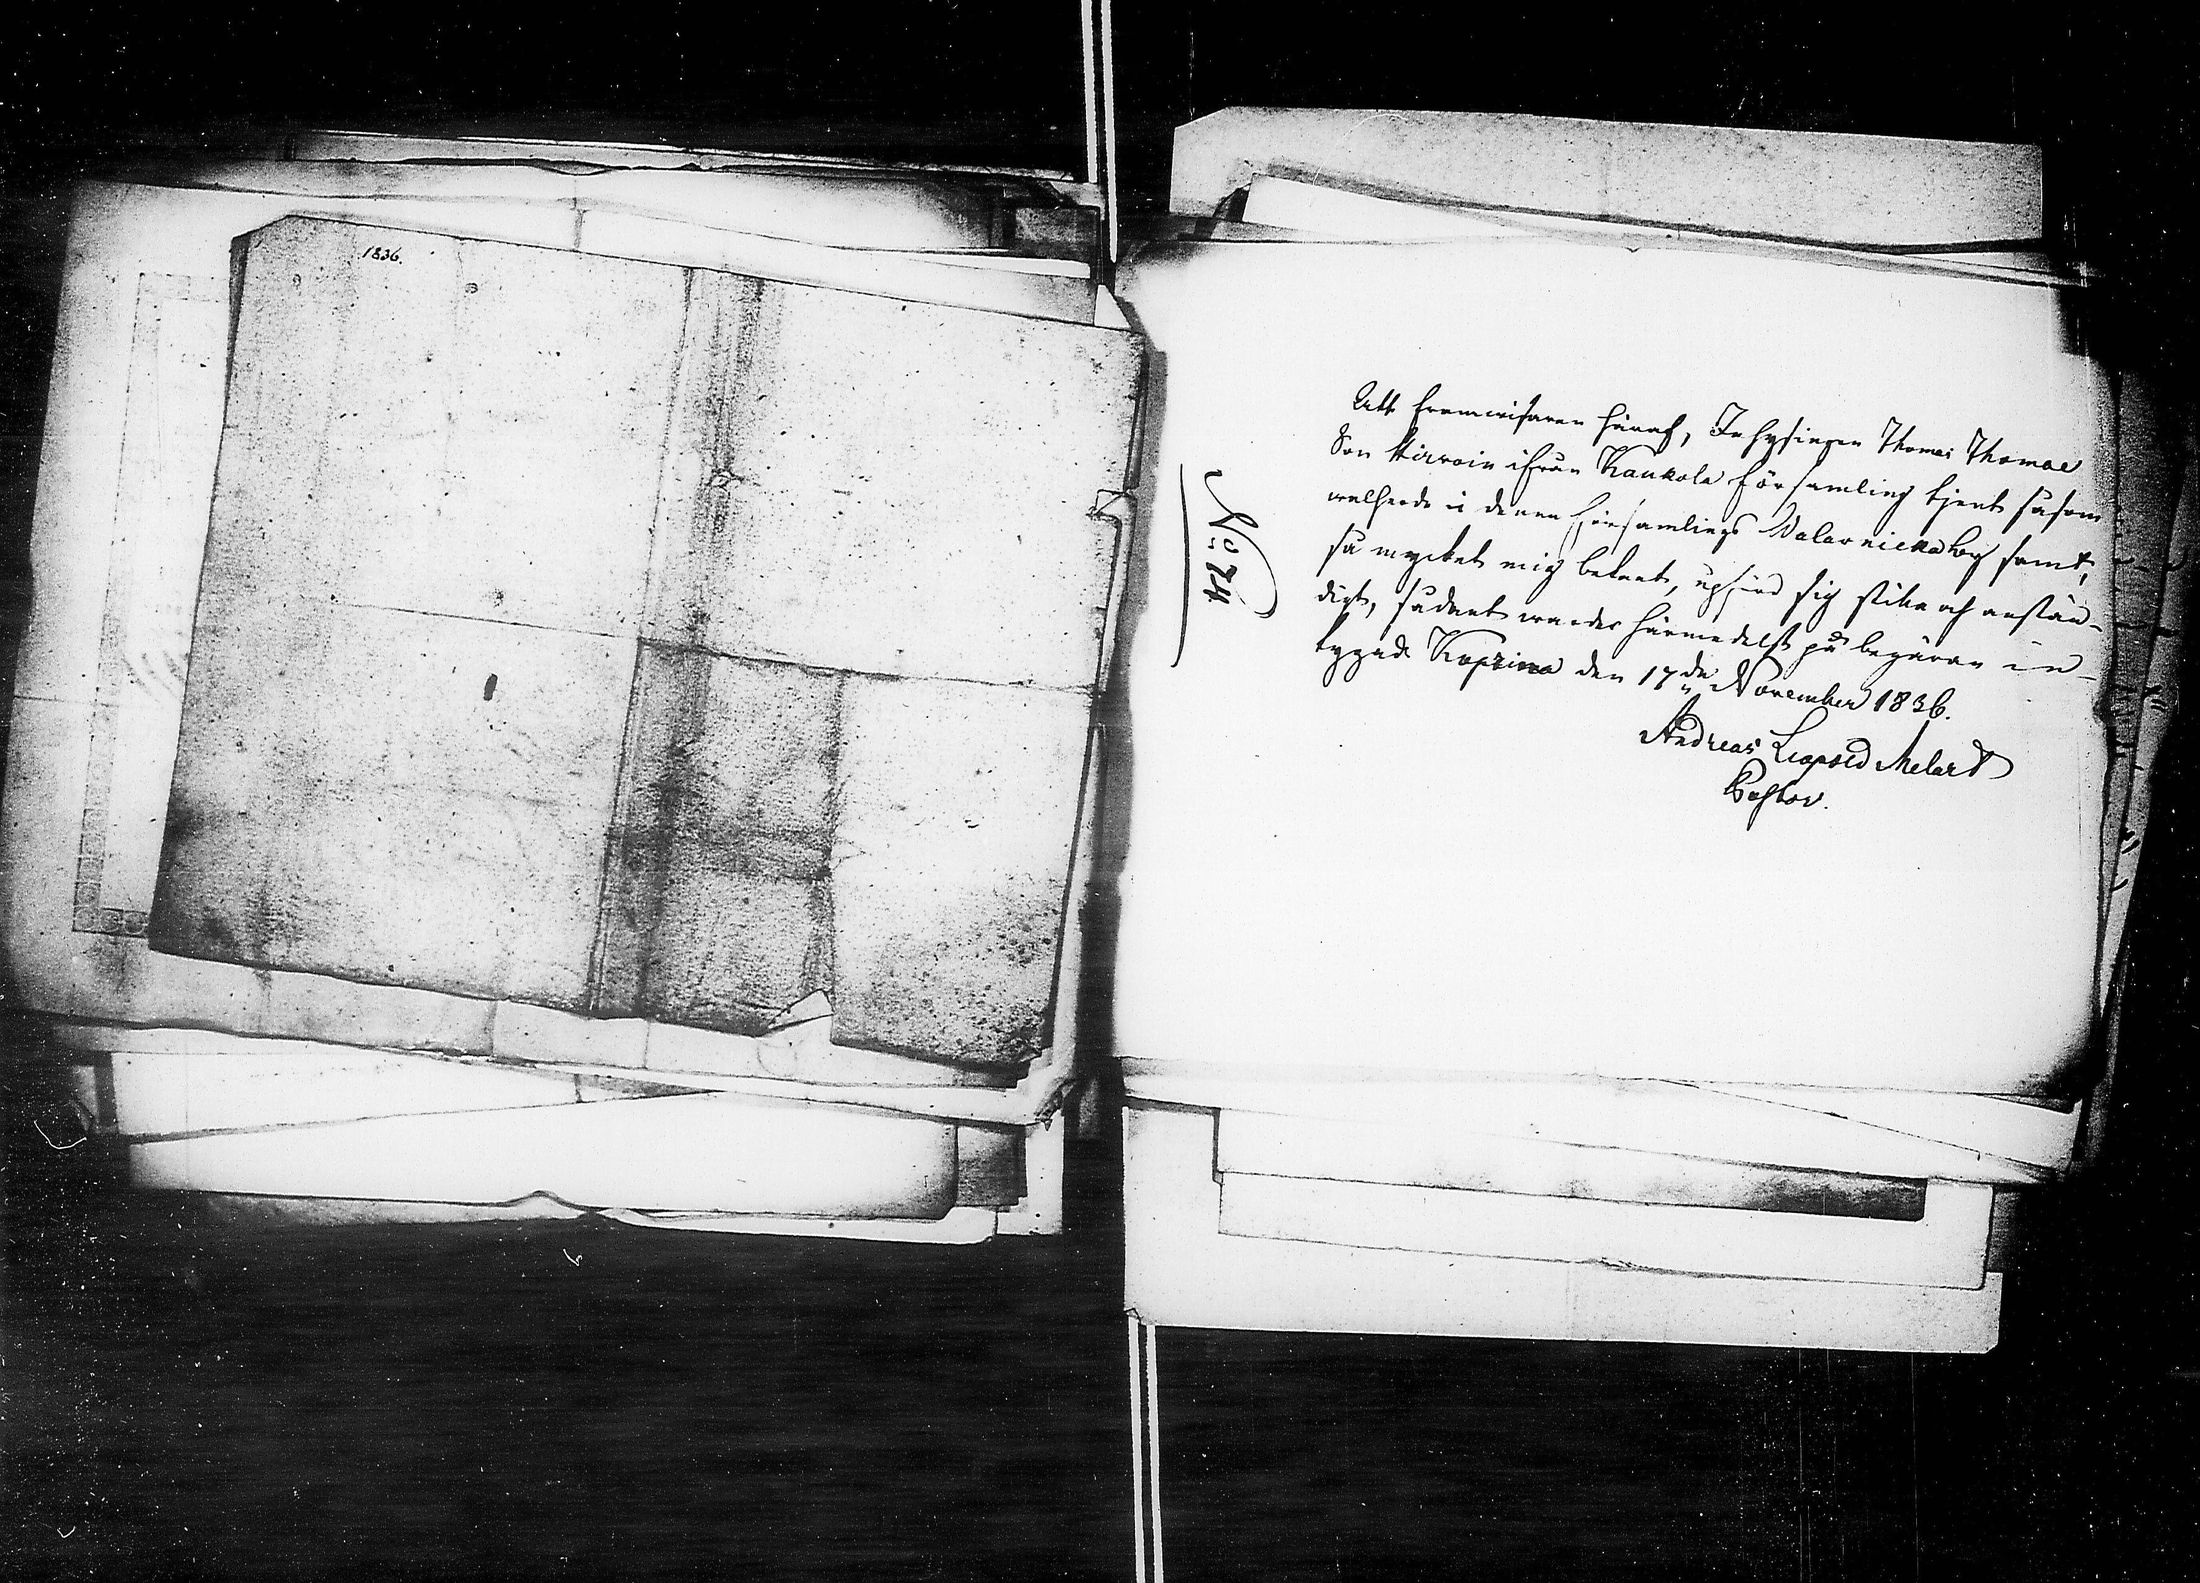 1836.
No: 74
Att framwisaren häraf, Inhysingen Thomas Thomae
Son Hirwoin ifrån Kaukola församling tjent såsom
wallherde i denna församlings Walarniema by samt,
så mycket mig bekant, upfört sig stilla och anstän-
digt, sådant warder härmedelst på begäran in-
tygadt. Koprina den 17de November 1836.
Andreas Leopold Melart
Pastor.